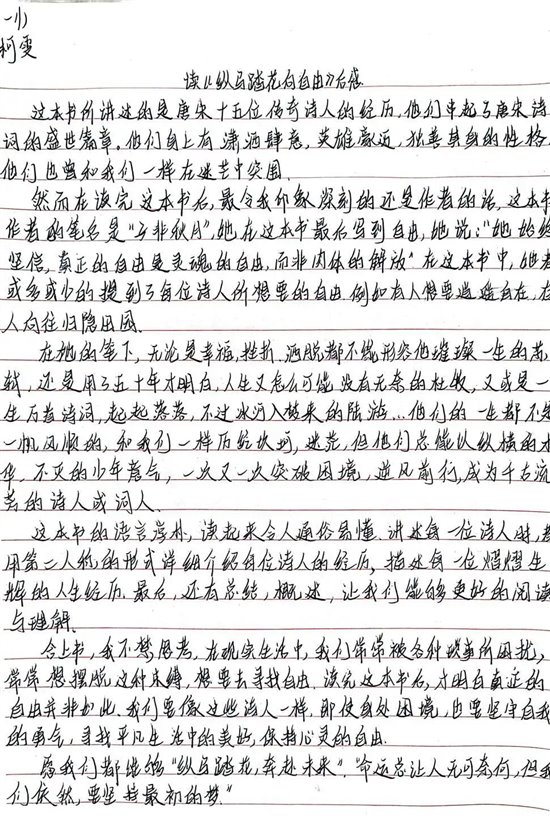 一(1)
柯雯
读《纵马踏花向自由》后感
这本书所讲述的是唐宋十五位传奇诗人的经历,他们串起了唐宋诗
词的盛世篇章。他们身上有潇洒肆意,英雄豪迈,独善其身的性格,
他们也曾和我们一样在迷茫中突围。
然而在读完这本书后,最令我印象深刻的还是作者的话,这本书
作者的笔名是“子非秋月”,她在这本书最后写到自由,她说:“她始终
坚信,真正的自由是灵魂的自由,而非肉体的解放”在这本书中,她都
或多或少的提到了每位诗人所想要的自由.例如有人想要逍遥自在,有
人向往归隐田园。
在她的笔下,无论是幸福,挫折,洒脱都不能形容他璀璨一生的苏
轼,还是用了五十年才明白,人生又怎么可能没有无奈的杜牧,又或是一
生万首诗词,起起落落,不过冰河入梦来的陆游…他们的一生都不是
一帆风顺的,和我们一样历经坎坷,迷茫,但他们总能以纵横的才
华,不灭的少年意气,一次又一次突破困境,逆风前行,成为千古流
芳的诗人或词人。
这本书的语言淳朴,读起来令人通俗易懂.讲述每一位诗人时,都
用第二人称的形式详细介绍每位诗人的经历,描述每一位熠熠生
辉的人生经历.最后,还有总结,概述,让我们能够更好的阅读
与理解。
合上书,我不禁思考,在现实生活中,我们常常被各种琐事所困扰,
常常想摆脱这种束缚,想要去寻找自由.读完这本书后,才明白真正的
自由并非如此.我们要像这些诗人一样,即使身处困境,也要坚守自我
的勇气,寻找平凡生活中的美好,保持心灵的自由.
愿我们都能够“纵马踏花,奔赴未来”.“命运总让人无可奈何,但我
们依然,要坚持最初的梦.”